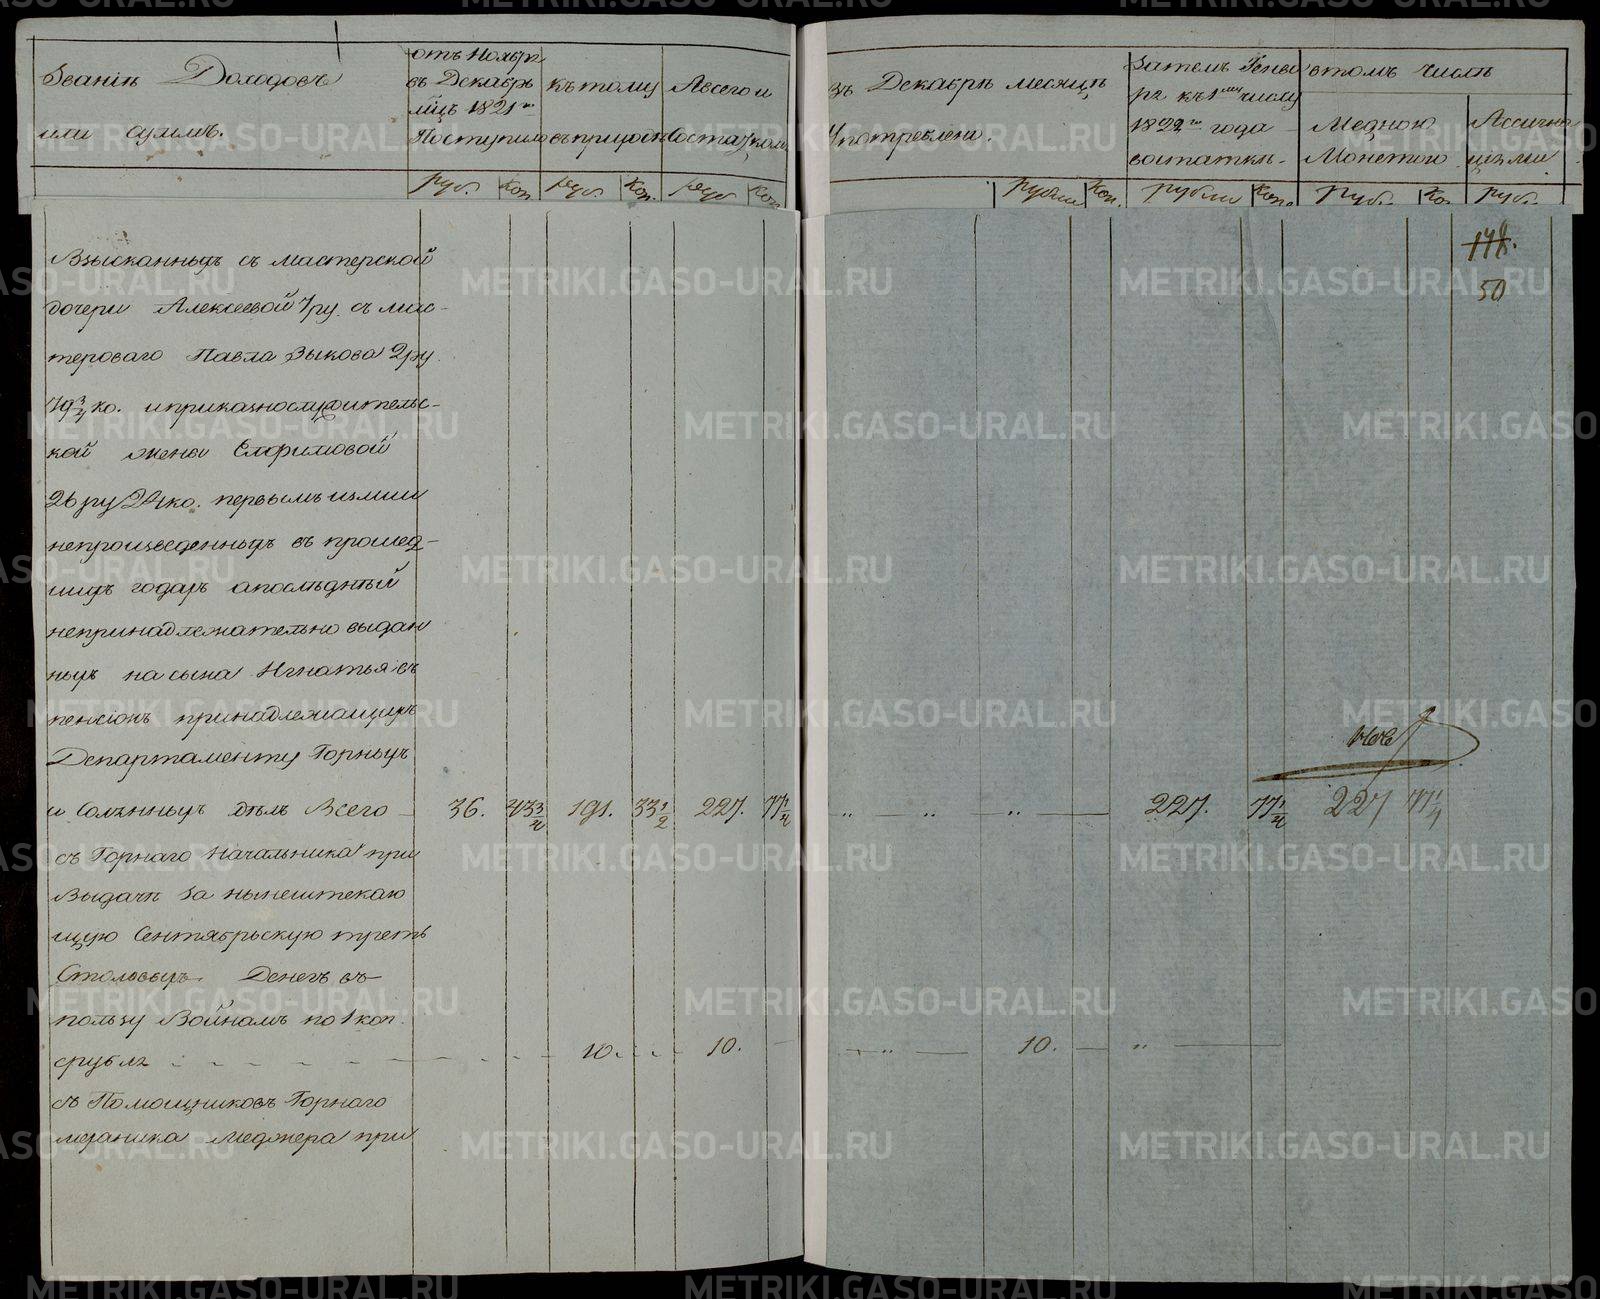 Званiи Доходовъ
или суммъ.
отъ Ноября
въ Декабрь
м̃цъ 1821го
Поступило
къ тому
въ приходъ
А всего и
состатком
въ Декабрѣ месяцѣ
Употреблено.
Затемъ Генва
ря къ 1му числу
1822го года
востаткѣ
втомъ числѣ
Медною
Монетою
Ассигна
цыями
руб. Коп руб. Коп. руб Коп
рубли Коп. рубли Коп. Руб. Ко. руб.
178.
50
Взысканныхъ съ мастерской
дочери Алексеевой 7 ру. съ мас-
тероваго Павла Зыкова 2 ру.
79¾ ко. и приказнослужительс-
кой жены Ефимовой
26 ру 24 ко. первымъ
непроизведенныхъ въ прошед-
шихъ годахъ а последный
непринадлежательно выдан
ныхъ на сына Игнатья въ
пенсiонъ принадлежащихъ
Департаменту Горныхъ
и Соляныхъ дѣлъ Всего 36. 43¾ 191. 33½ 227. 77¼ 227. 77¼ 227 77¼
съ Горнаго Начальника при
Выдачѣ за нынештекаю
щую Сентябрьскую треть
Столовыхъ Денегъ въ
пользу Войнамъ по 1 коп.
срубля 10. 10. 10.
съ Помощниковъ Горнаго
механика Меджера при
METRIKI.GASO-URAL.RU